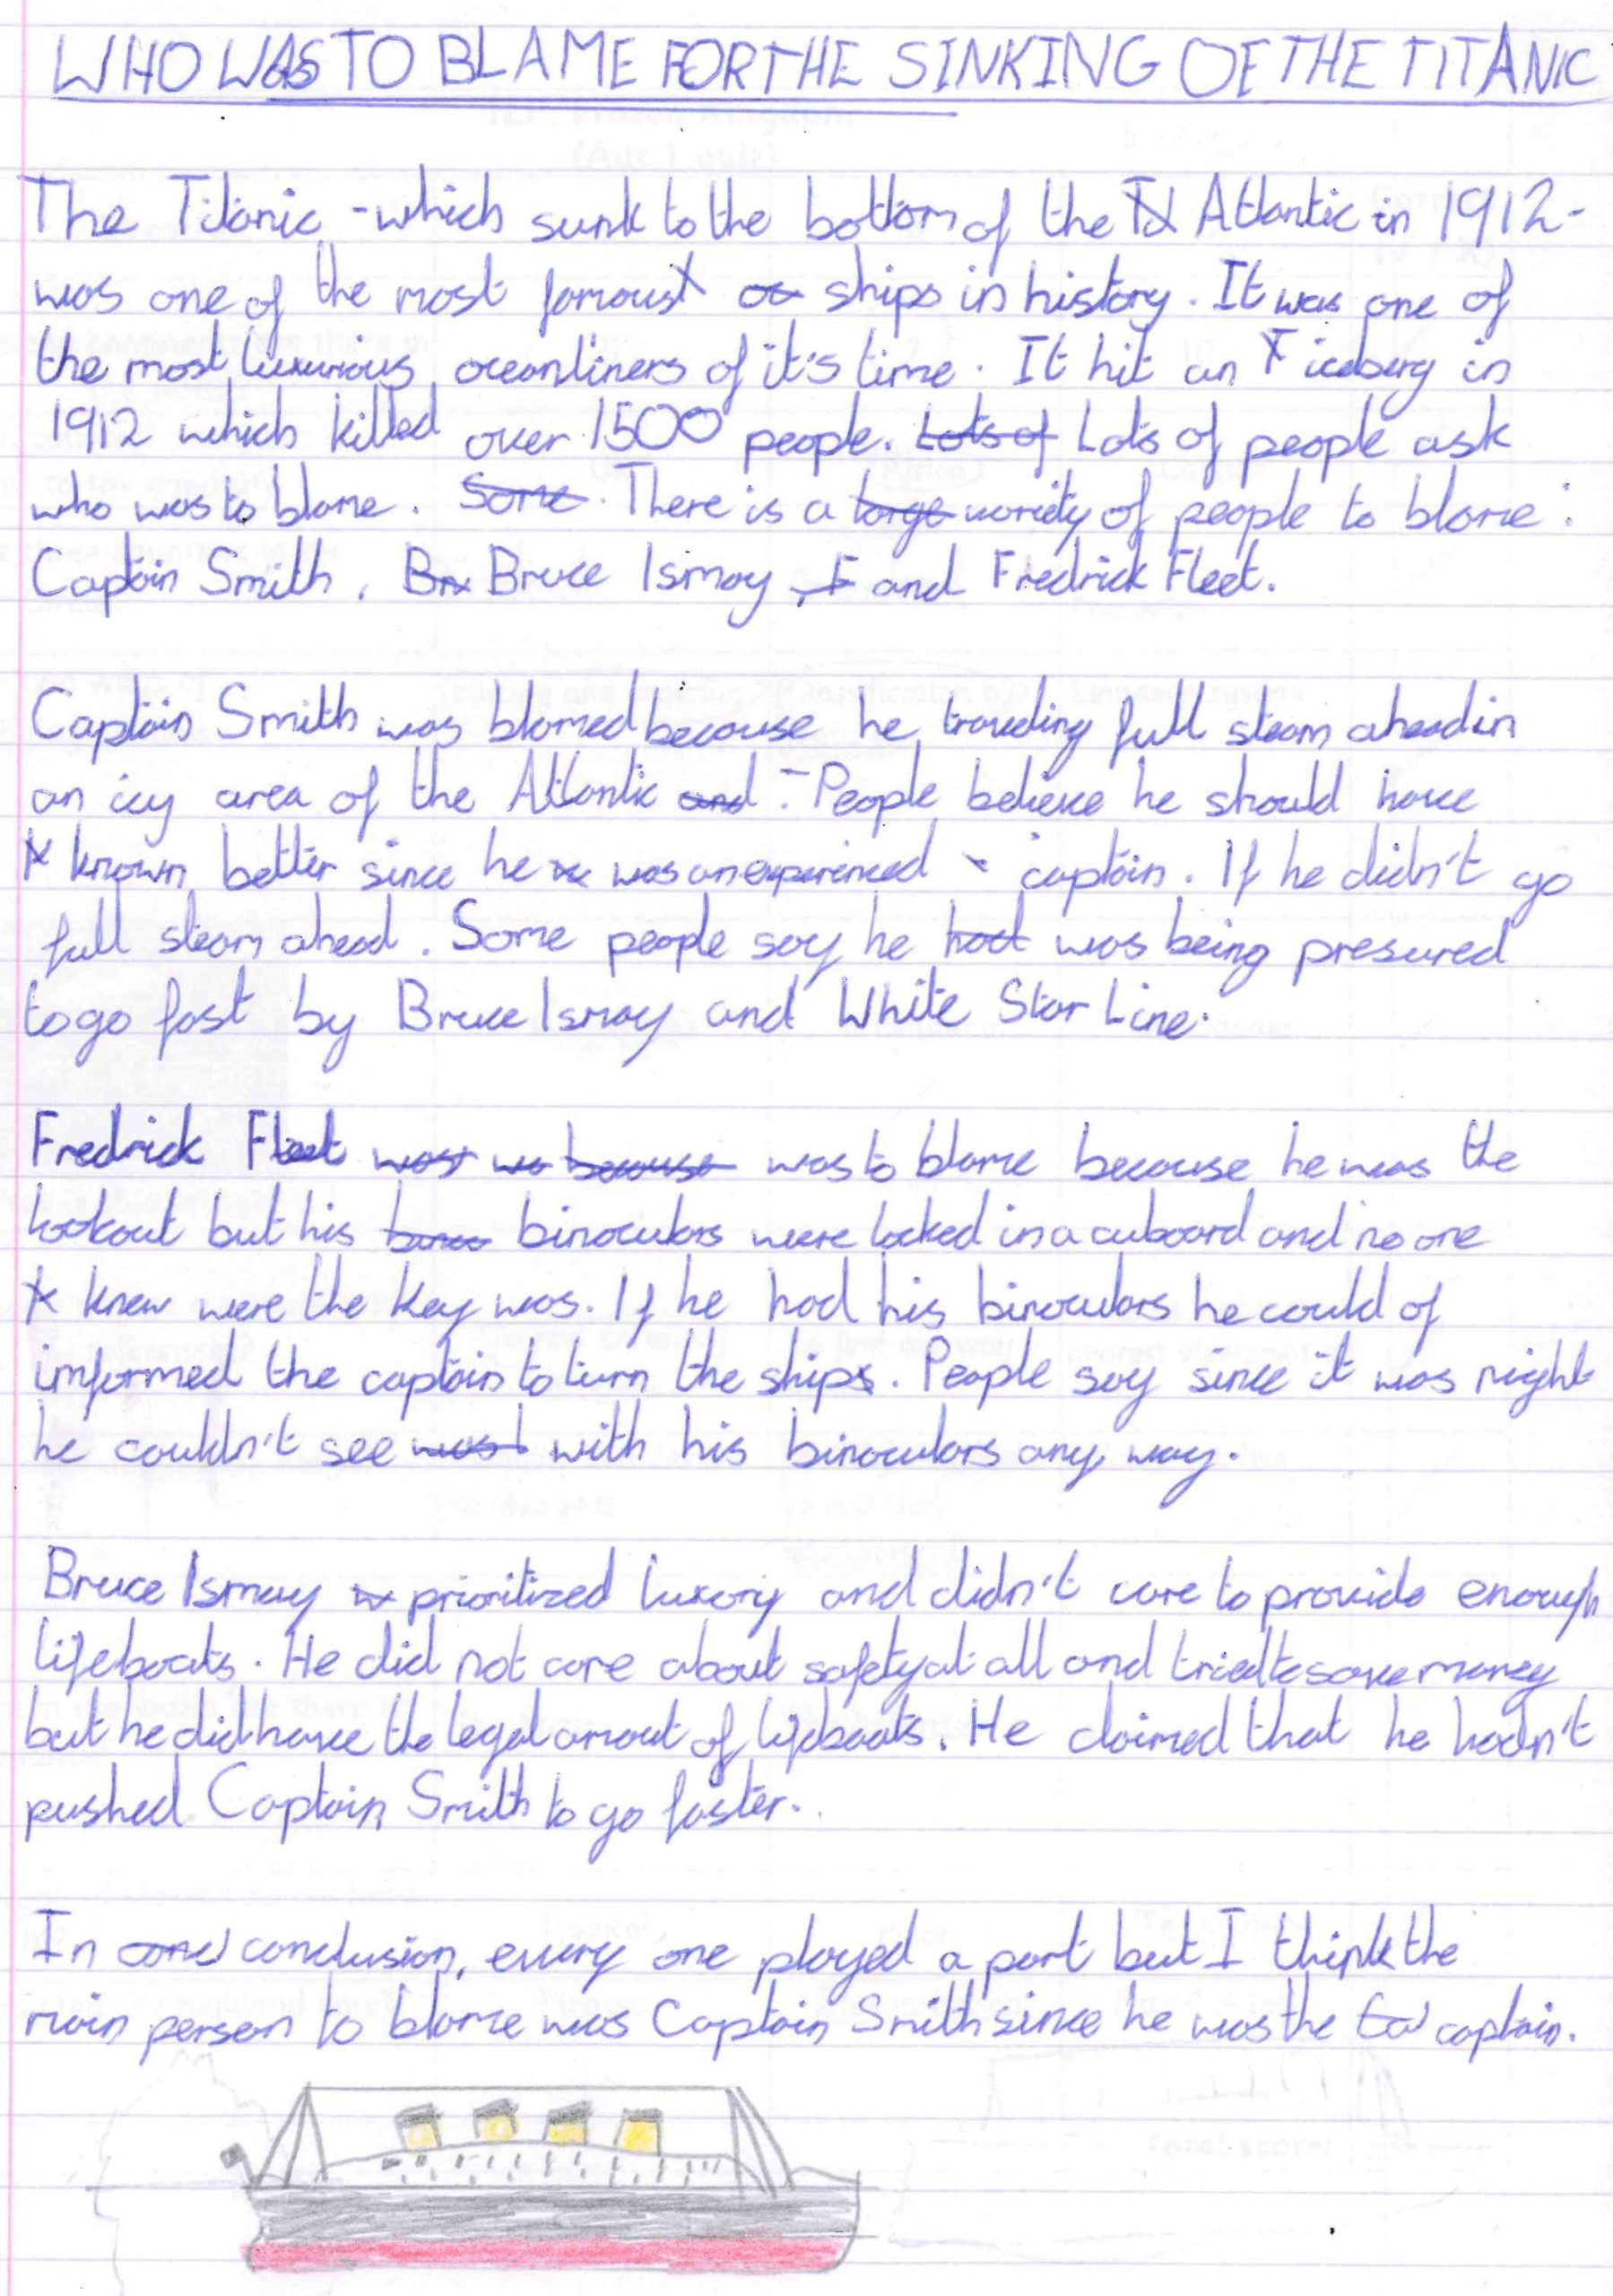 WHO WAS TO BLAME FOR THE SINKING OF THE TITANIC
The Titanic -which sunk to the bottom of the Atlantic in 1912-
was one of the most famous ships in history. It was one of
the most luxurious oceanliners of it's time. It hit an iceberg in
1912 which killed over 1500 people. Lots of Lots of people ask
who was to blame. Some There is a large variety of people to blame:
Captain Smith, Bruce Ismay and Fredrick Fleet.
Captain Smith was blamed because he traveling full steam ahead in
an icy area of the Atlantic and. People believe he should have
known better since he was an experienced captain. If he didn't go
full steam ahead. Some people say he had was being presured
to go fast by Bruce Ismay and White Star Line.
Fredrick Fleet was because was to blame because he was the
lookout but his binoculars were locked in a cuboard and no one
knew were the key was. If he had his binoculars he could of
informed the captain to turn the ship. People say since it was night
he couldn't see with his binoculars any way.
Bruce Ismay prioritized luxory and didn't care to provide enough
lifeboats. He did not care about safety at all and tried to save money
but he did have the legal amout of lifeboats. He claimed that he hadn't
pushed Captain Smith to go faster.
In conclusion, every one played a part but I think the
main person to blame was Captain Smith since he was the captain.